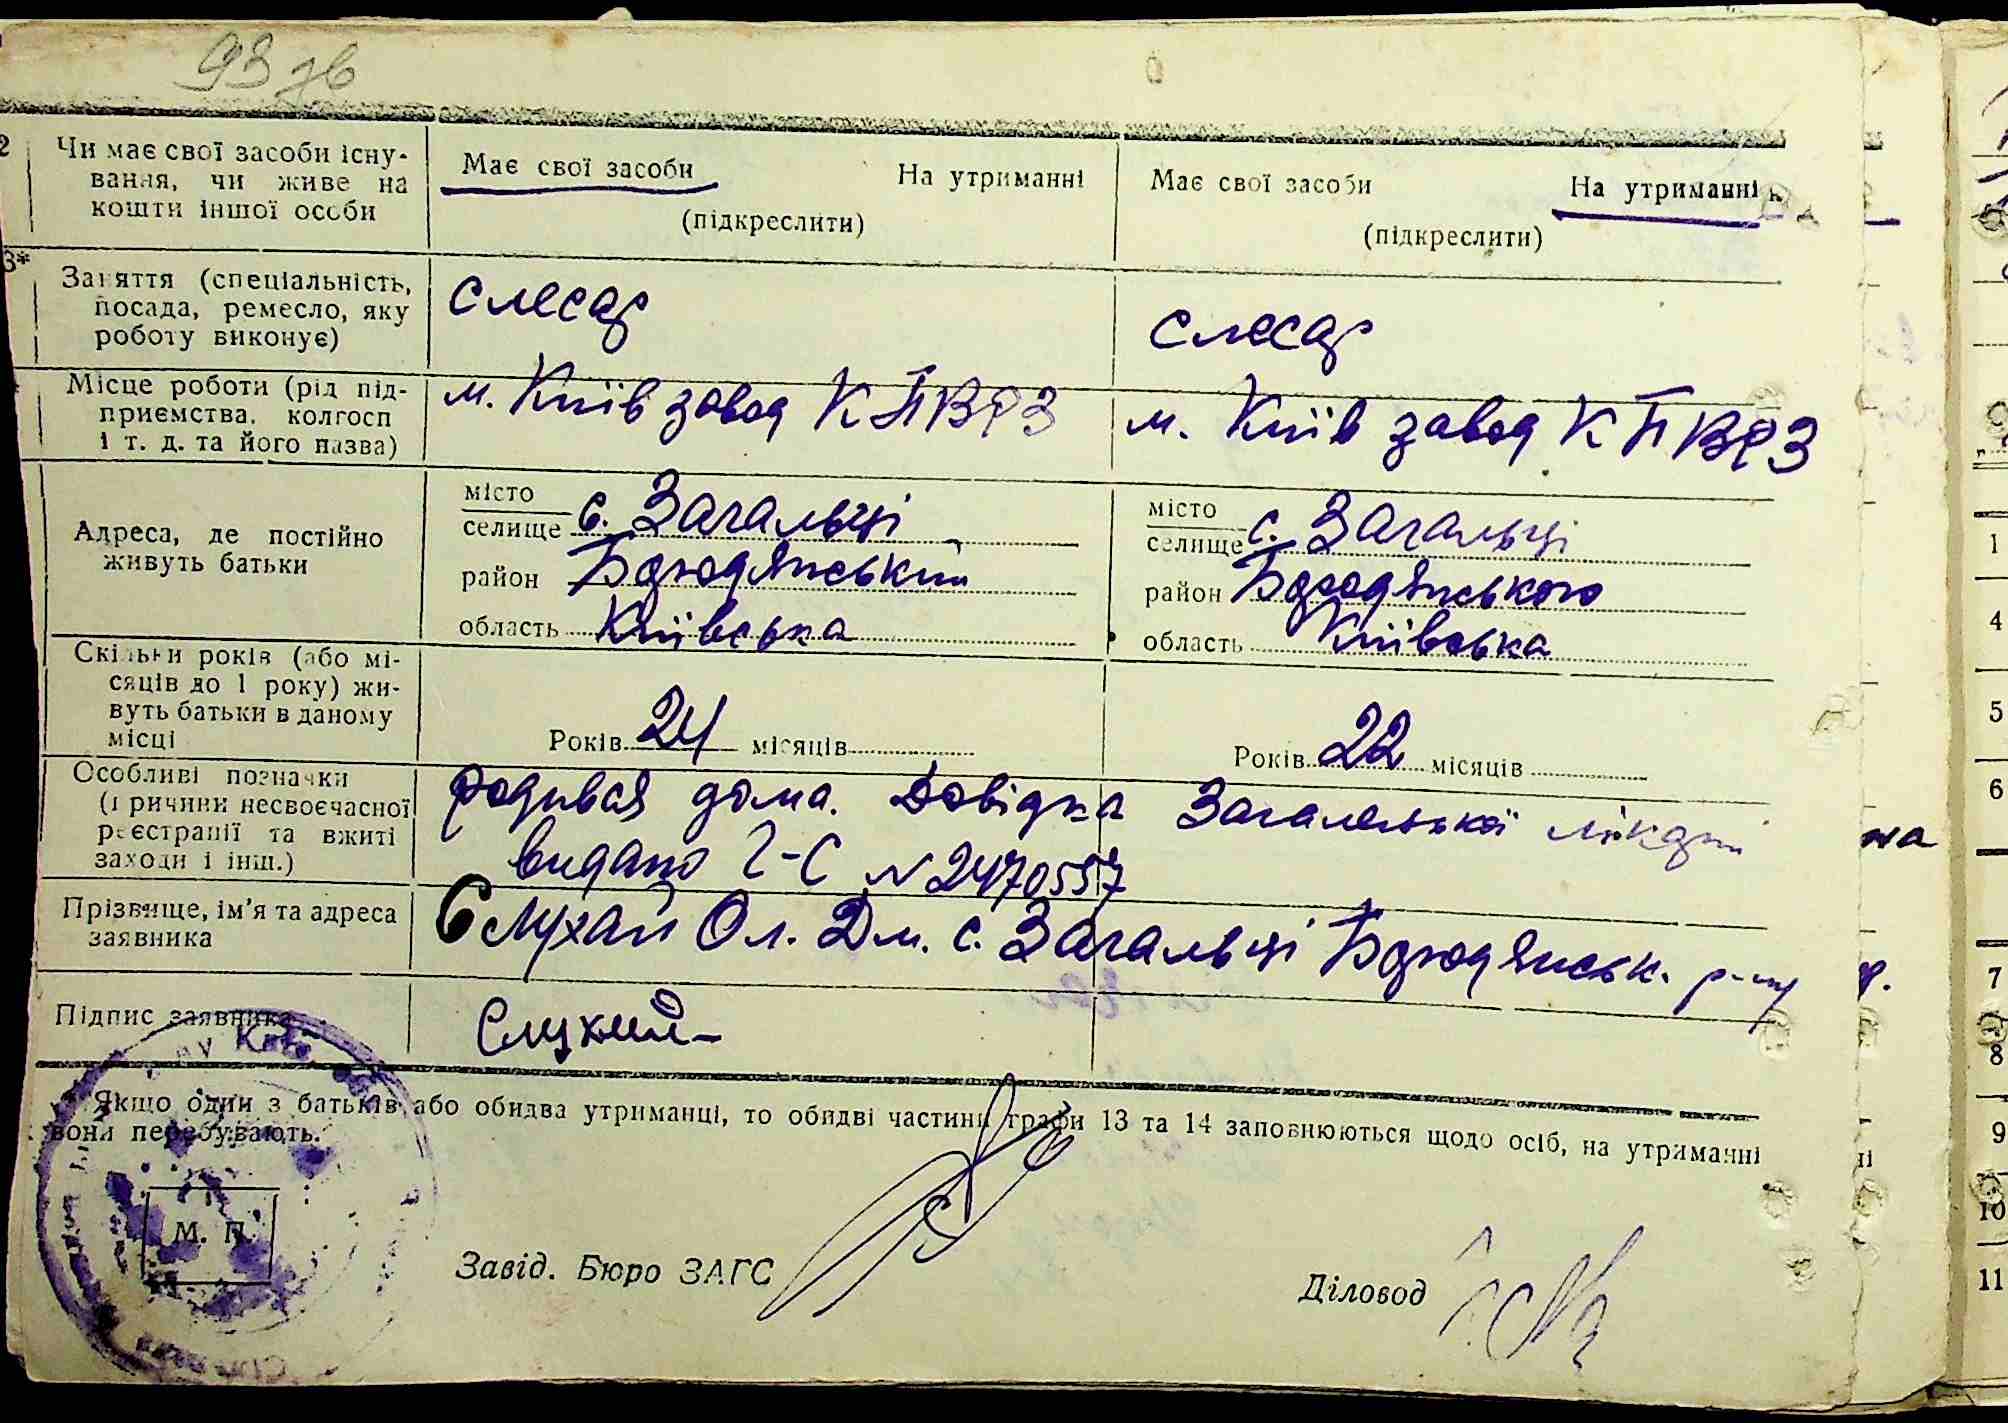 93 зв
2 Чи має свої засоби існу- Має свої засоби На утриманні Має свої засоби На утриманні
вання, чи живе на
кошти іншої особи (підкреслити) (підкреслити)
3* Заняття (спеціальність, слесар слесар
посада, ремесло, яку
роботу виконує)
Місце роботи (рід під- м. Київ завод КПВРЗ м. Київ завод КПВРЗ
приємства, колгосп
і т. д. та його назва)
місто місто
селище с. Загальці селище с. Загальці
Адреса, де постійно
живуть батьки
район Бородянський район Бородянського
область Київська область Київська
Скільки років (або мі-
сяців до 1 року) жи-
вуть батьки в даному
місці Років 24 місяців Років 22 місяців
Особливі позначки родився дома. Довідка Загалецької лікарні
(причини несвоєчасної
реєстрації та вжиті видано І-С № 2470557
заходи і інш.)
Прізвище, ім'я та адреса Слухай Ол. Дм. с. Загальці Бородянськ. р-ну
заявника
Підпис заявника Слухай
Якщо один з батьків або обидва утриманці, то обидві частини графи 13 та 14 заповнюються щодо осіб, на утриманні
вони перебувають.
М. П.
Завід. Бюро ЗАГС Діловод
1
4
5
6
7
8
9
10
11